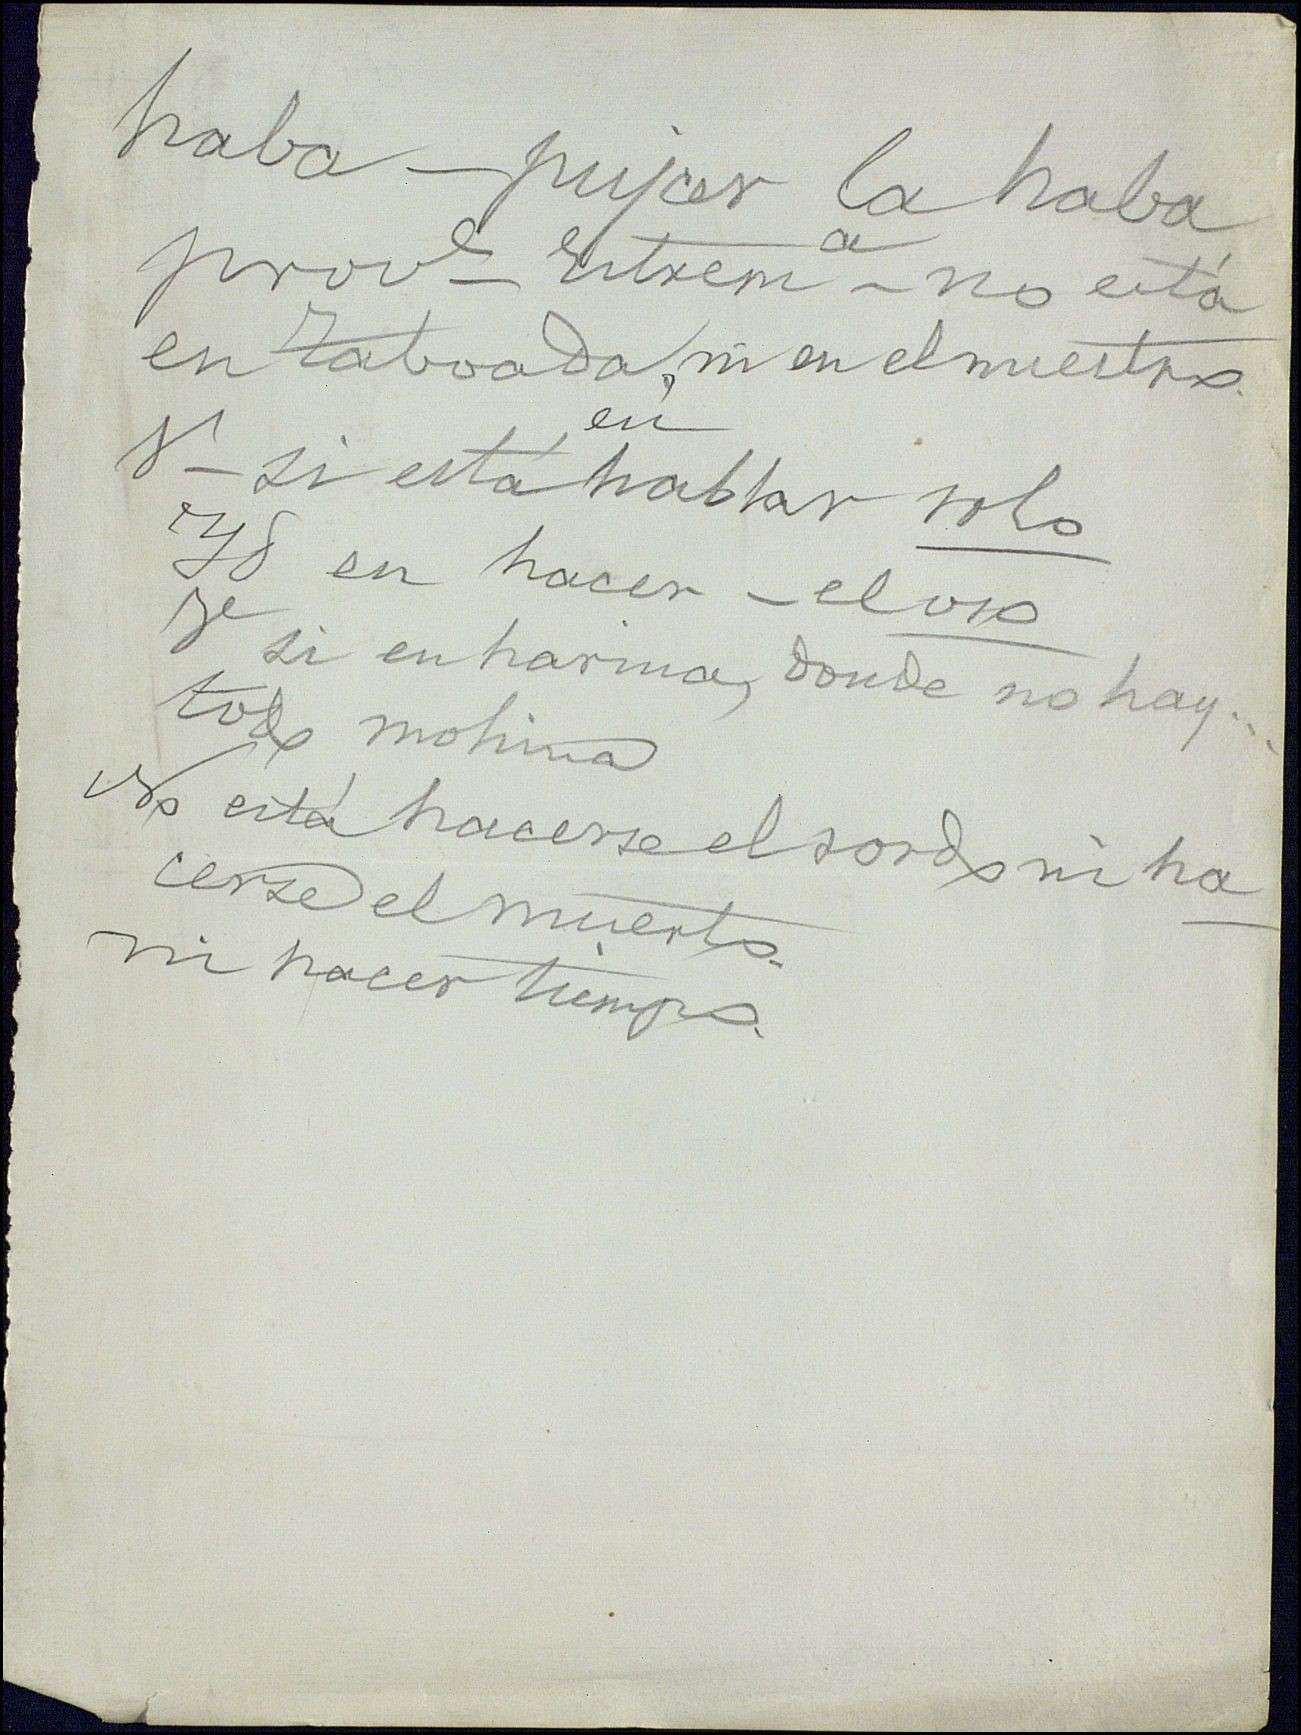 haba — pujar la haba
prov^e — Extrem^a — no está
en Taboada, ni en el nuestro.
si está en hablar solo
Id en hacer — el oso
Id si en harina, donde no hay...
todo mohina
No está hacerse el sordo ni ha
cerse el muerto.
ni hacer tiempo.